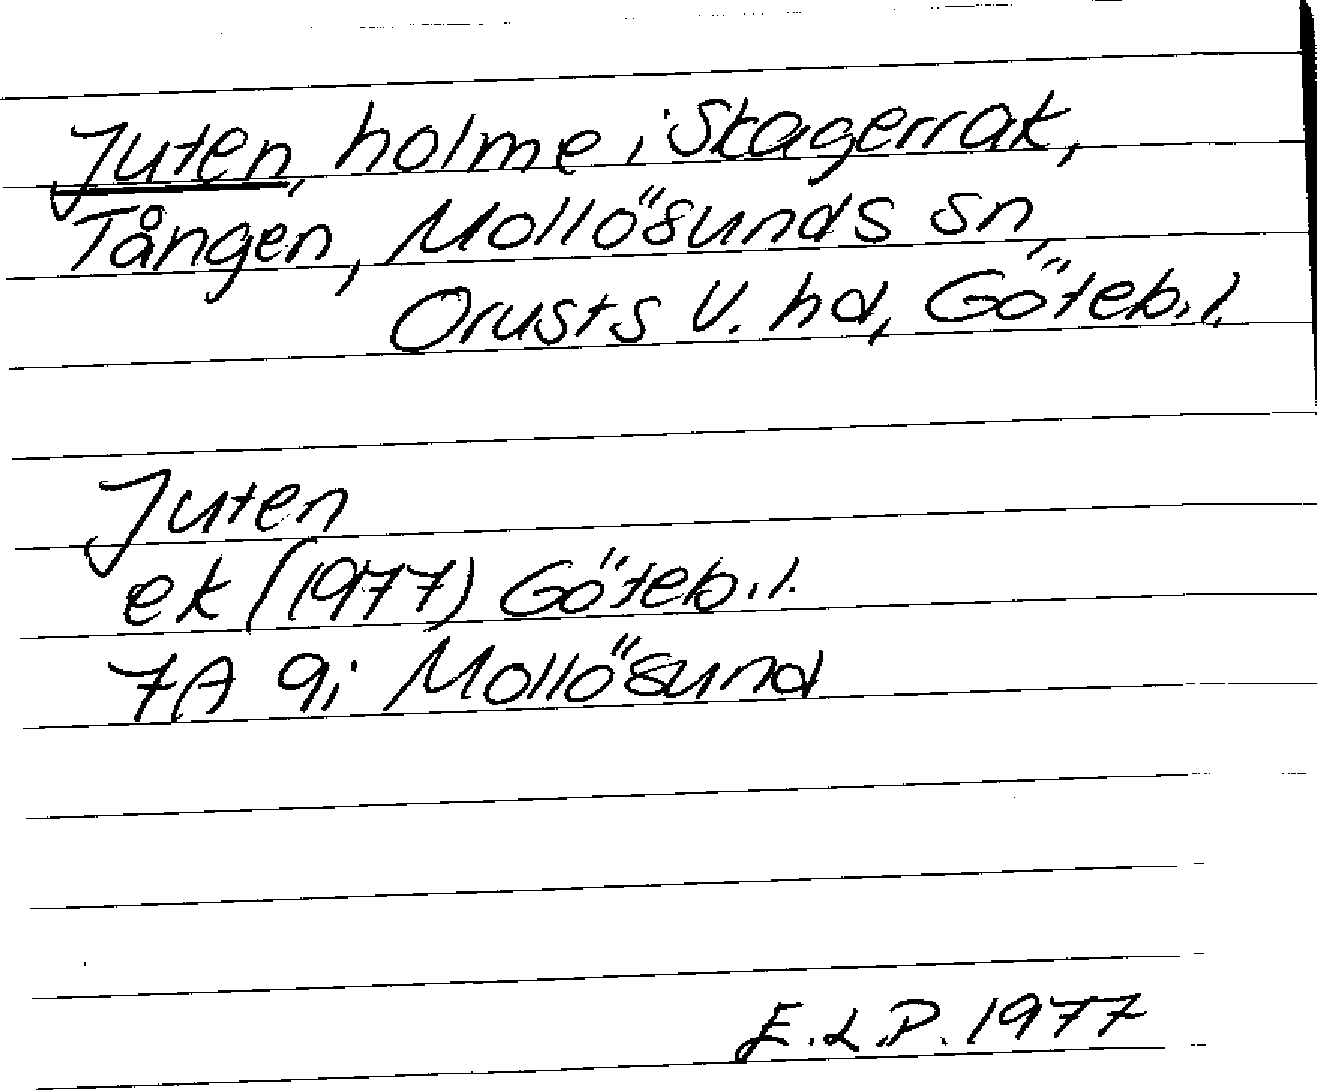 Juten, holme i Skagerrak,
Tången, Mollösunds sn,
Orusts V. hd, Göteb.l.
Juten
ek (1977) Göteb.l.
7A 9i Mollösund
E.L.P. 1977